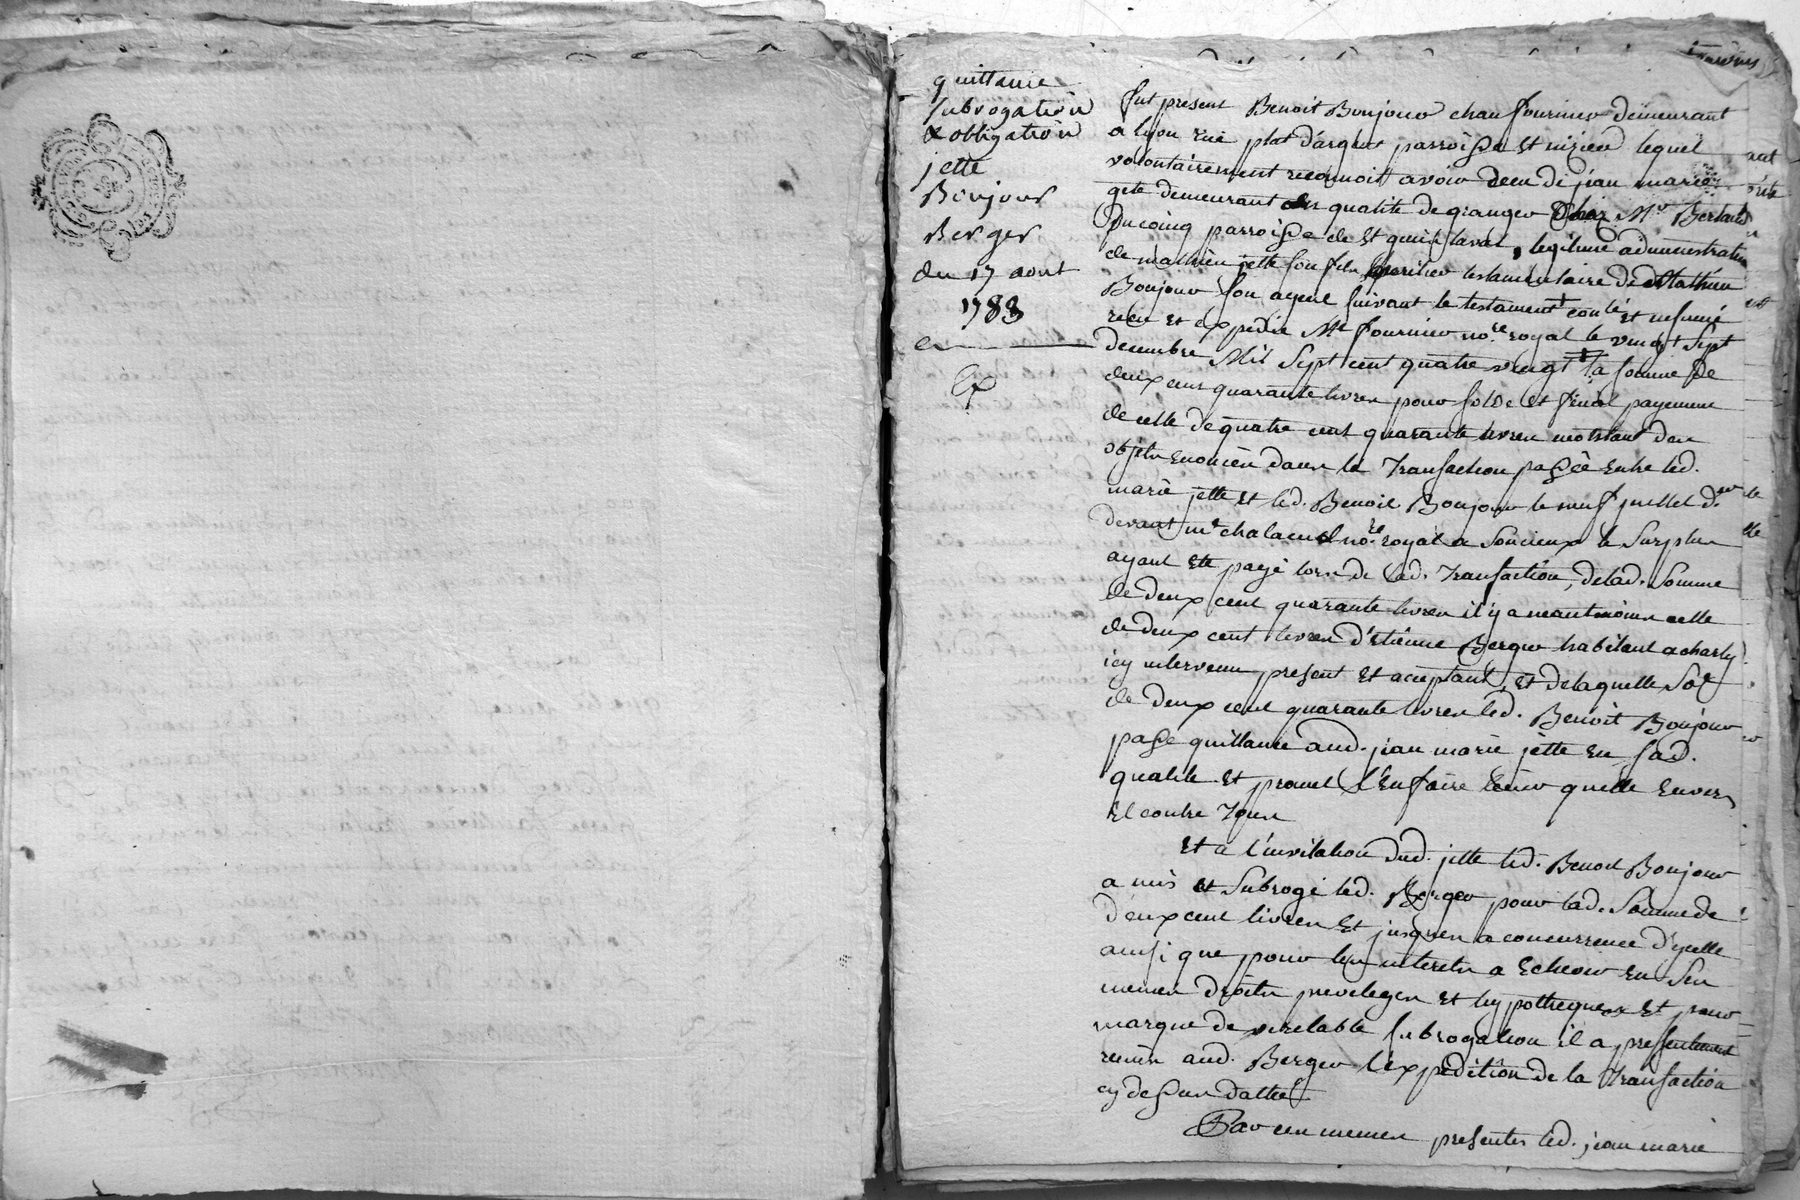 quittance
subrogation
& obligation
jette
Bonjour
Berger
du 17 aout
1783
fut present Benoit Bonjour chaufournier demeurant
a lyon rue plat d'argent parroisse st nizier lequel
volontairement reconnoit avoir recu de jean marie
jette demeurant en qualité de granger chez Mr
Ducoing parroisse de st genis laval, legitime administrateur
de mathieu jette son fils heritier testamentaire de Mathieu
Bonjour son ayeul suivant le testament
recu et expedié Me fournier nore. royal le vingt sept
decembre Mil sept cent quatre vingt la somme de
deux cens quarante livres pour solde et final payement
de celle de quatre cent quarante livres montant des
objets enoncées dans la Transaction passée entre led.
marie jette et led. Benoit Bonjour le neuf juillet dr
devant me chalamel nore. royal a Soucieux le surplus
ayant eté payé lors de lad. Transaction, de lad. somme
de deux cent quarante livres il y a neantmoins celle
de deux cent livres d'etienne Berger habitant a charly
icy intervenu present et aceptant, et delaquelle soe
de deux cent quarante livres led. Benoit Bonjour
passe quittance aud. jean marie jette en sad.
qualité et promet l'en faire tenir quitte envers
et contre Tous
Et a l'invitation dud. jette led. Benoit Bonjour
a mis et subrogé led. Berger pour lad. somme de
deux cent livres et jusques a concurrence d'ycelle
ainsi que pour les interets a Echeoir en ses
memes droits privileges et hypotheques et pour
marque de veritable subrogation il a presentement
remis aud. Berger l'expedition de la Transaction
cy dessus dattée
Par ces memes presentes led. jean marie